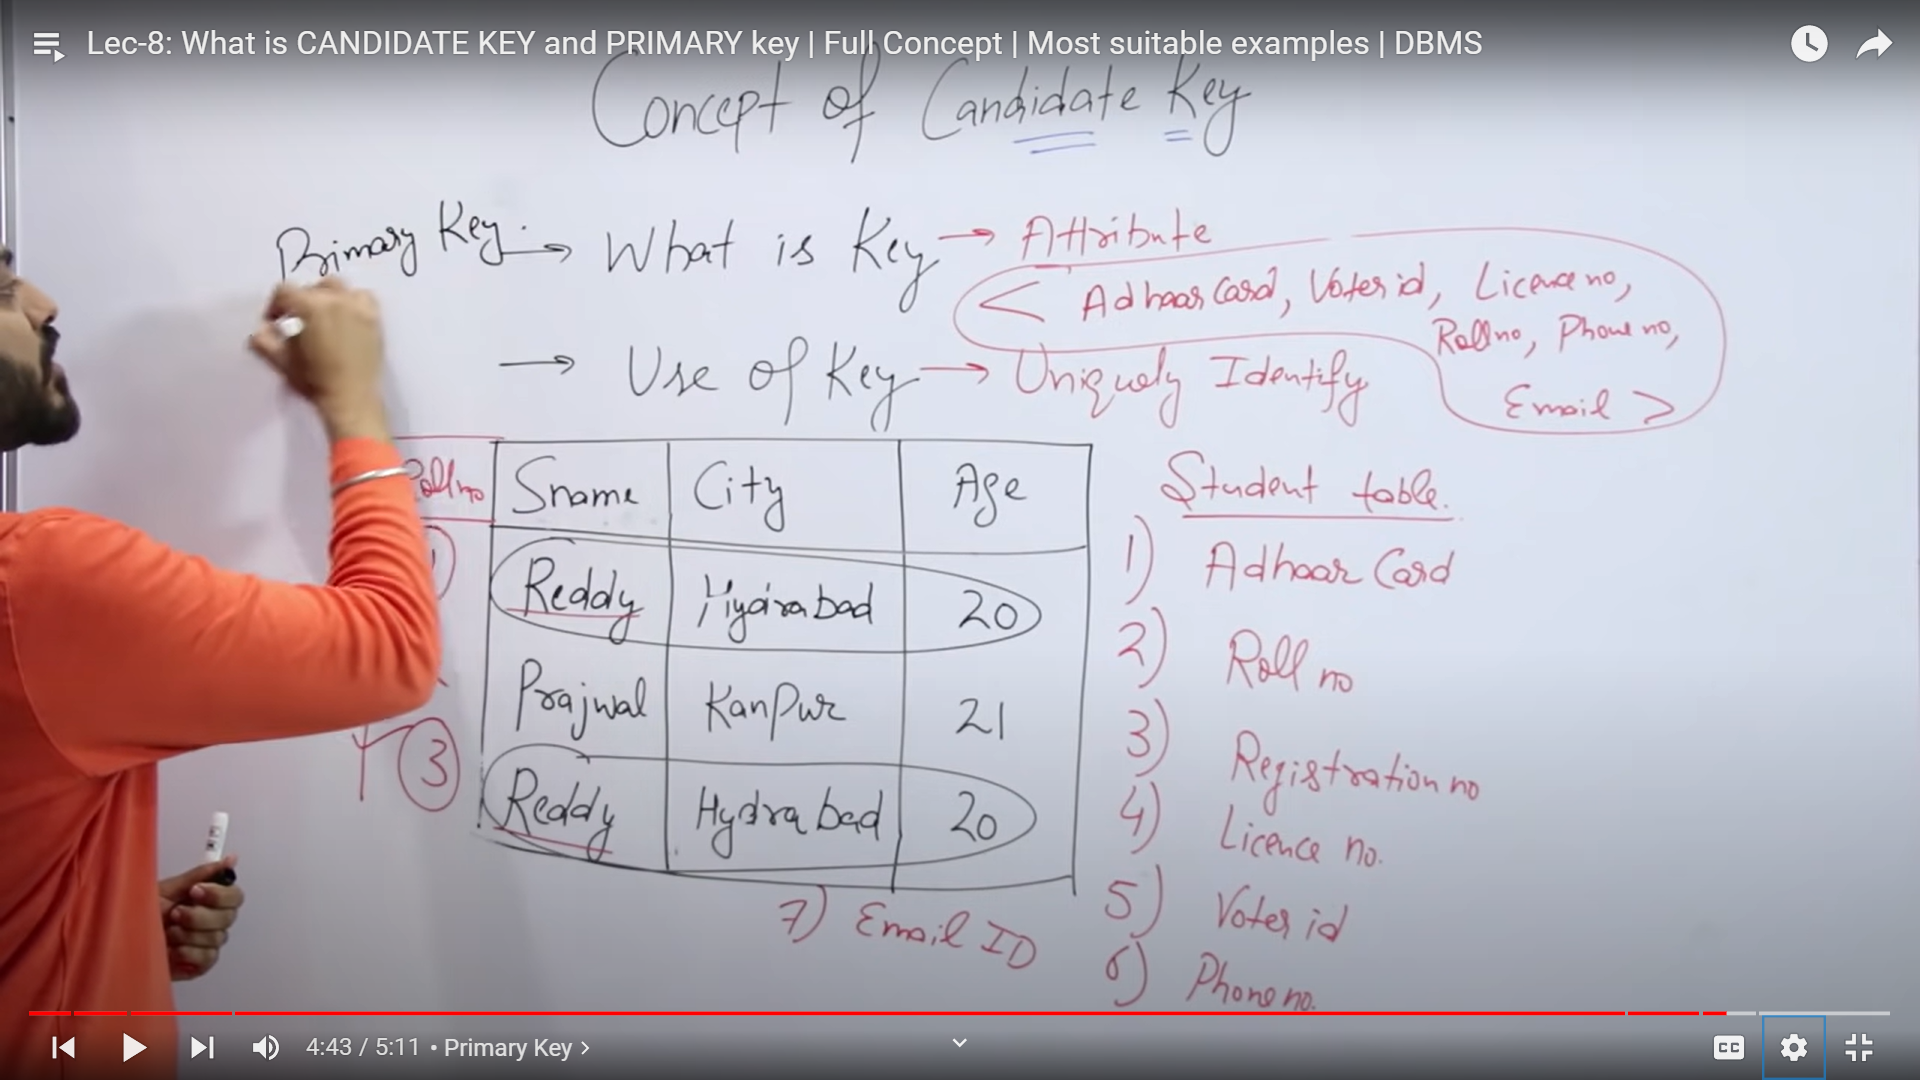 Lec-8: What is CANDIDATE KEY and PRIMARY key | Full Concept | Most suitable examples | DBMS
Concept of Candidate Key
Primary Key. → What is Key → Attribute
< Adhaar Card, Voter id, Licence no,
Roll no, Phone no,
Email >
→ Use of Key → Uniquely Identify
Roll no Sname City Age
Reddy Hydrabad 20
Prajwal Kanpur 21
3 Reddy Hydrabad 20
Student table.
1) Adhaar Card
2) Roll no
3) Registration no
4) Licence no.
5) Voter id
6) Phone no.
7) Email ID
4:43 / 5:11 • Primary Key >
CC